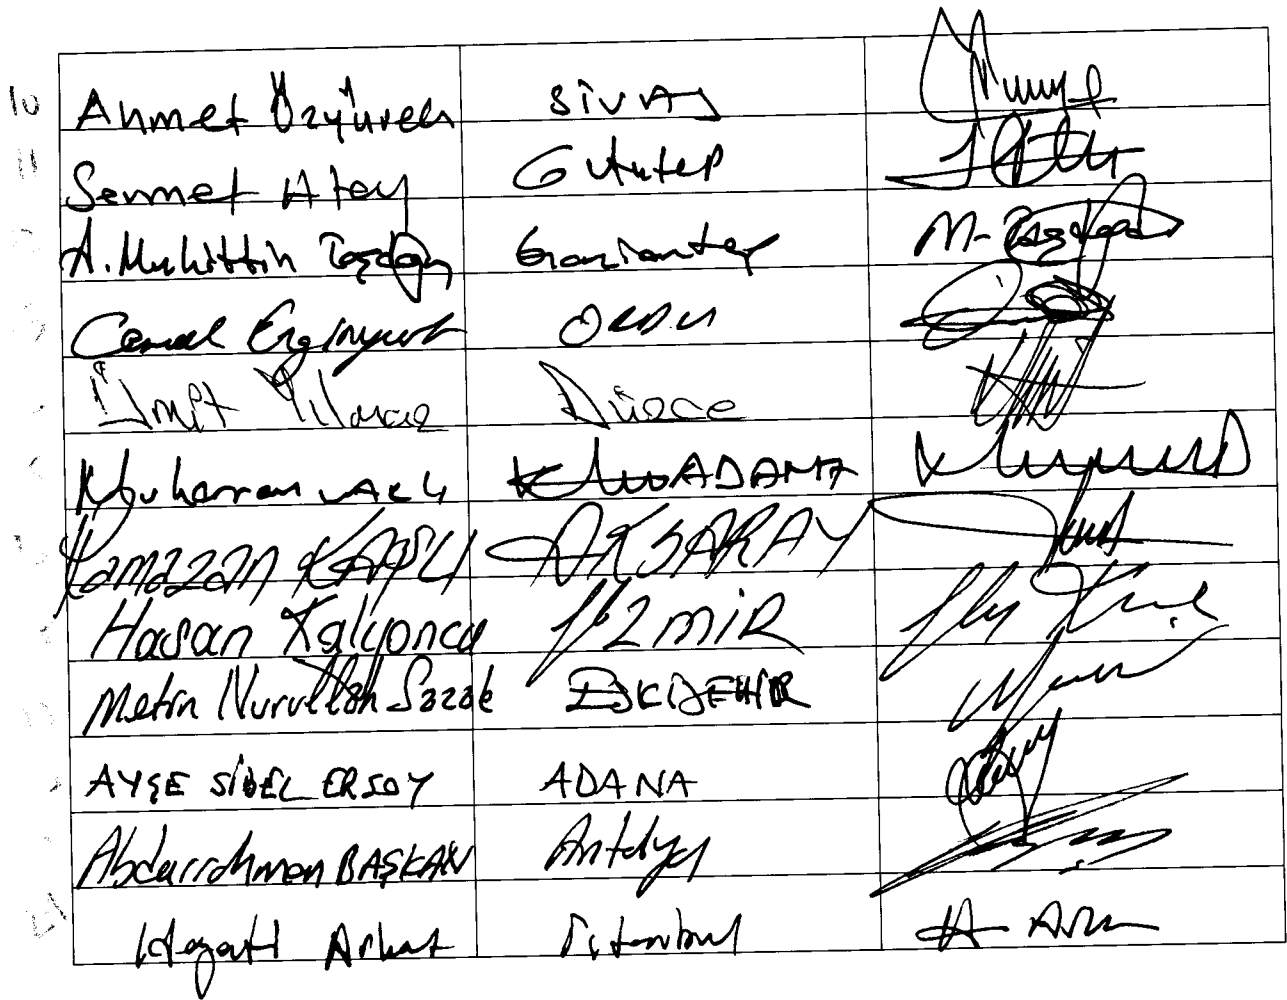 10 Ahmet Özyürek SİVAS
11 Sermet Atay G Antep
A. Muhittin Taşdoğan Gaziantep M. Taşdoğan
Cemal Enginyurt ORDU
Ümit Yılmaz Düzce
Muharrem VARLI ADANA
Ramazan KAŞLI AKSARAY
Hasan Kalyoncu İzmiR
Metin Nurullah Sazak ESKİŞEHİR
AYŞE SİBEL ERSOY ADANA
Abdurrahman BAŞKAN Antalya
Hayati Arkaz İstanbul